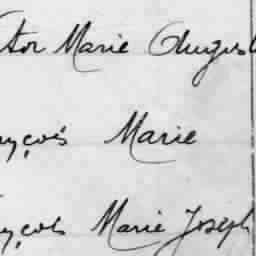 ctor Marie August
nçois Marie
nçois Marie Joseph